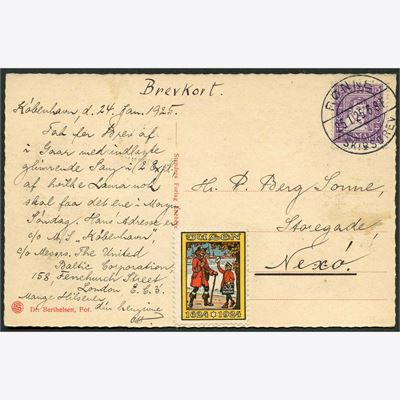 Brevkort.
København, d. 24. Jan. 1925.
Tak for Brev af
i Gaar med indlagte
glimrende Sang i 2 Expl.
af hvilke Launa nok
skal faa det ene i Morgen
Søndag. Hans Adresse er
c/o M/S "København",
c/o Messrs. The United
Baltic Corporation,
158, Fenchurch Street
London E.C.3.
Mange Hilsener
din hengivne
Dr. Berthelsen, Fot.
Stenders Forlag Eneret
RØNNE
SKIBSBREV
H. P. Berg Sonne,
Storegade,
Nexø.
1624 1924